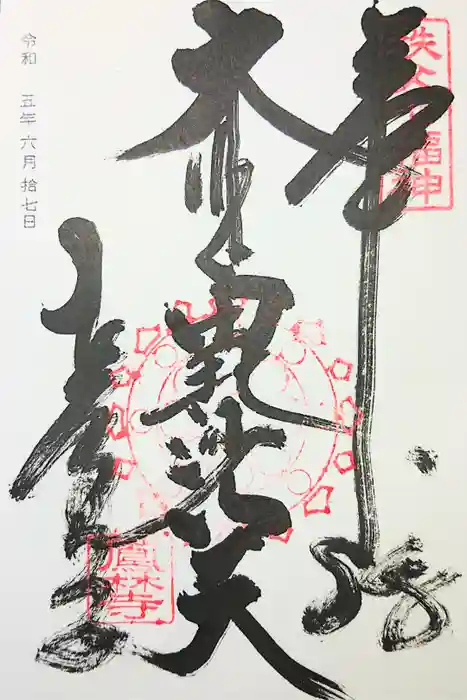 秩父七福神
奉拝
毘沙天
鳳林寺
令和 五年 六月 拾七日